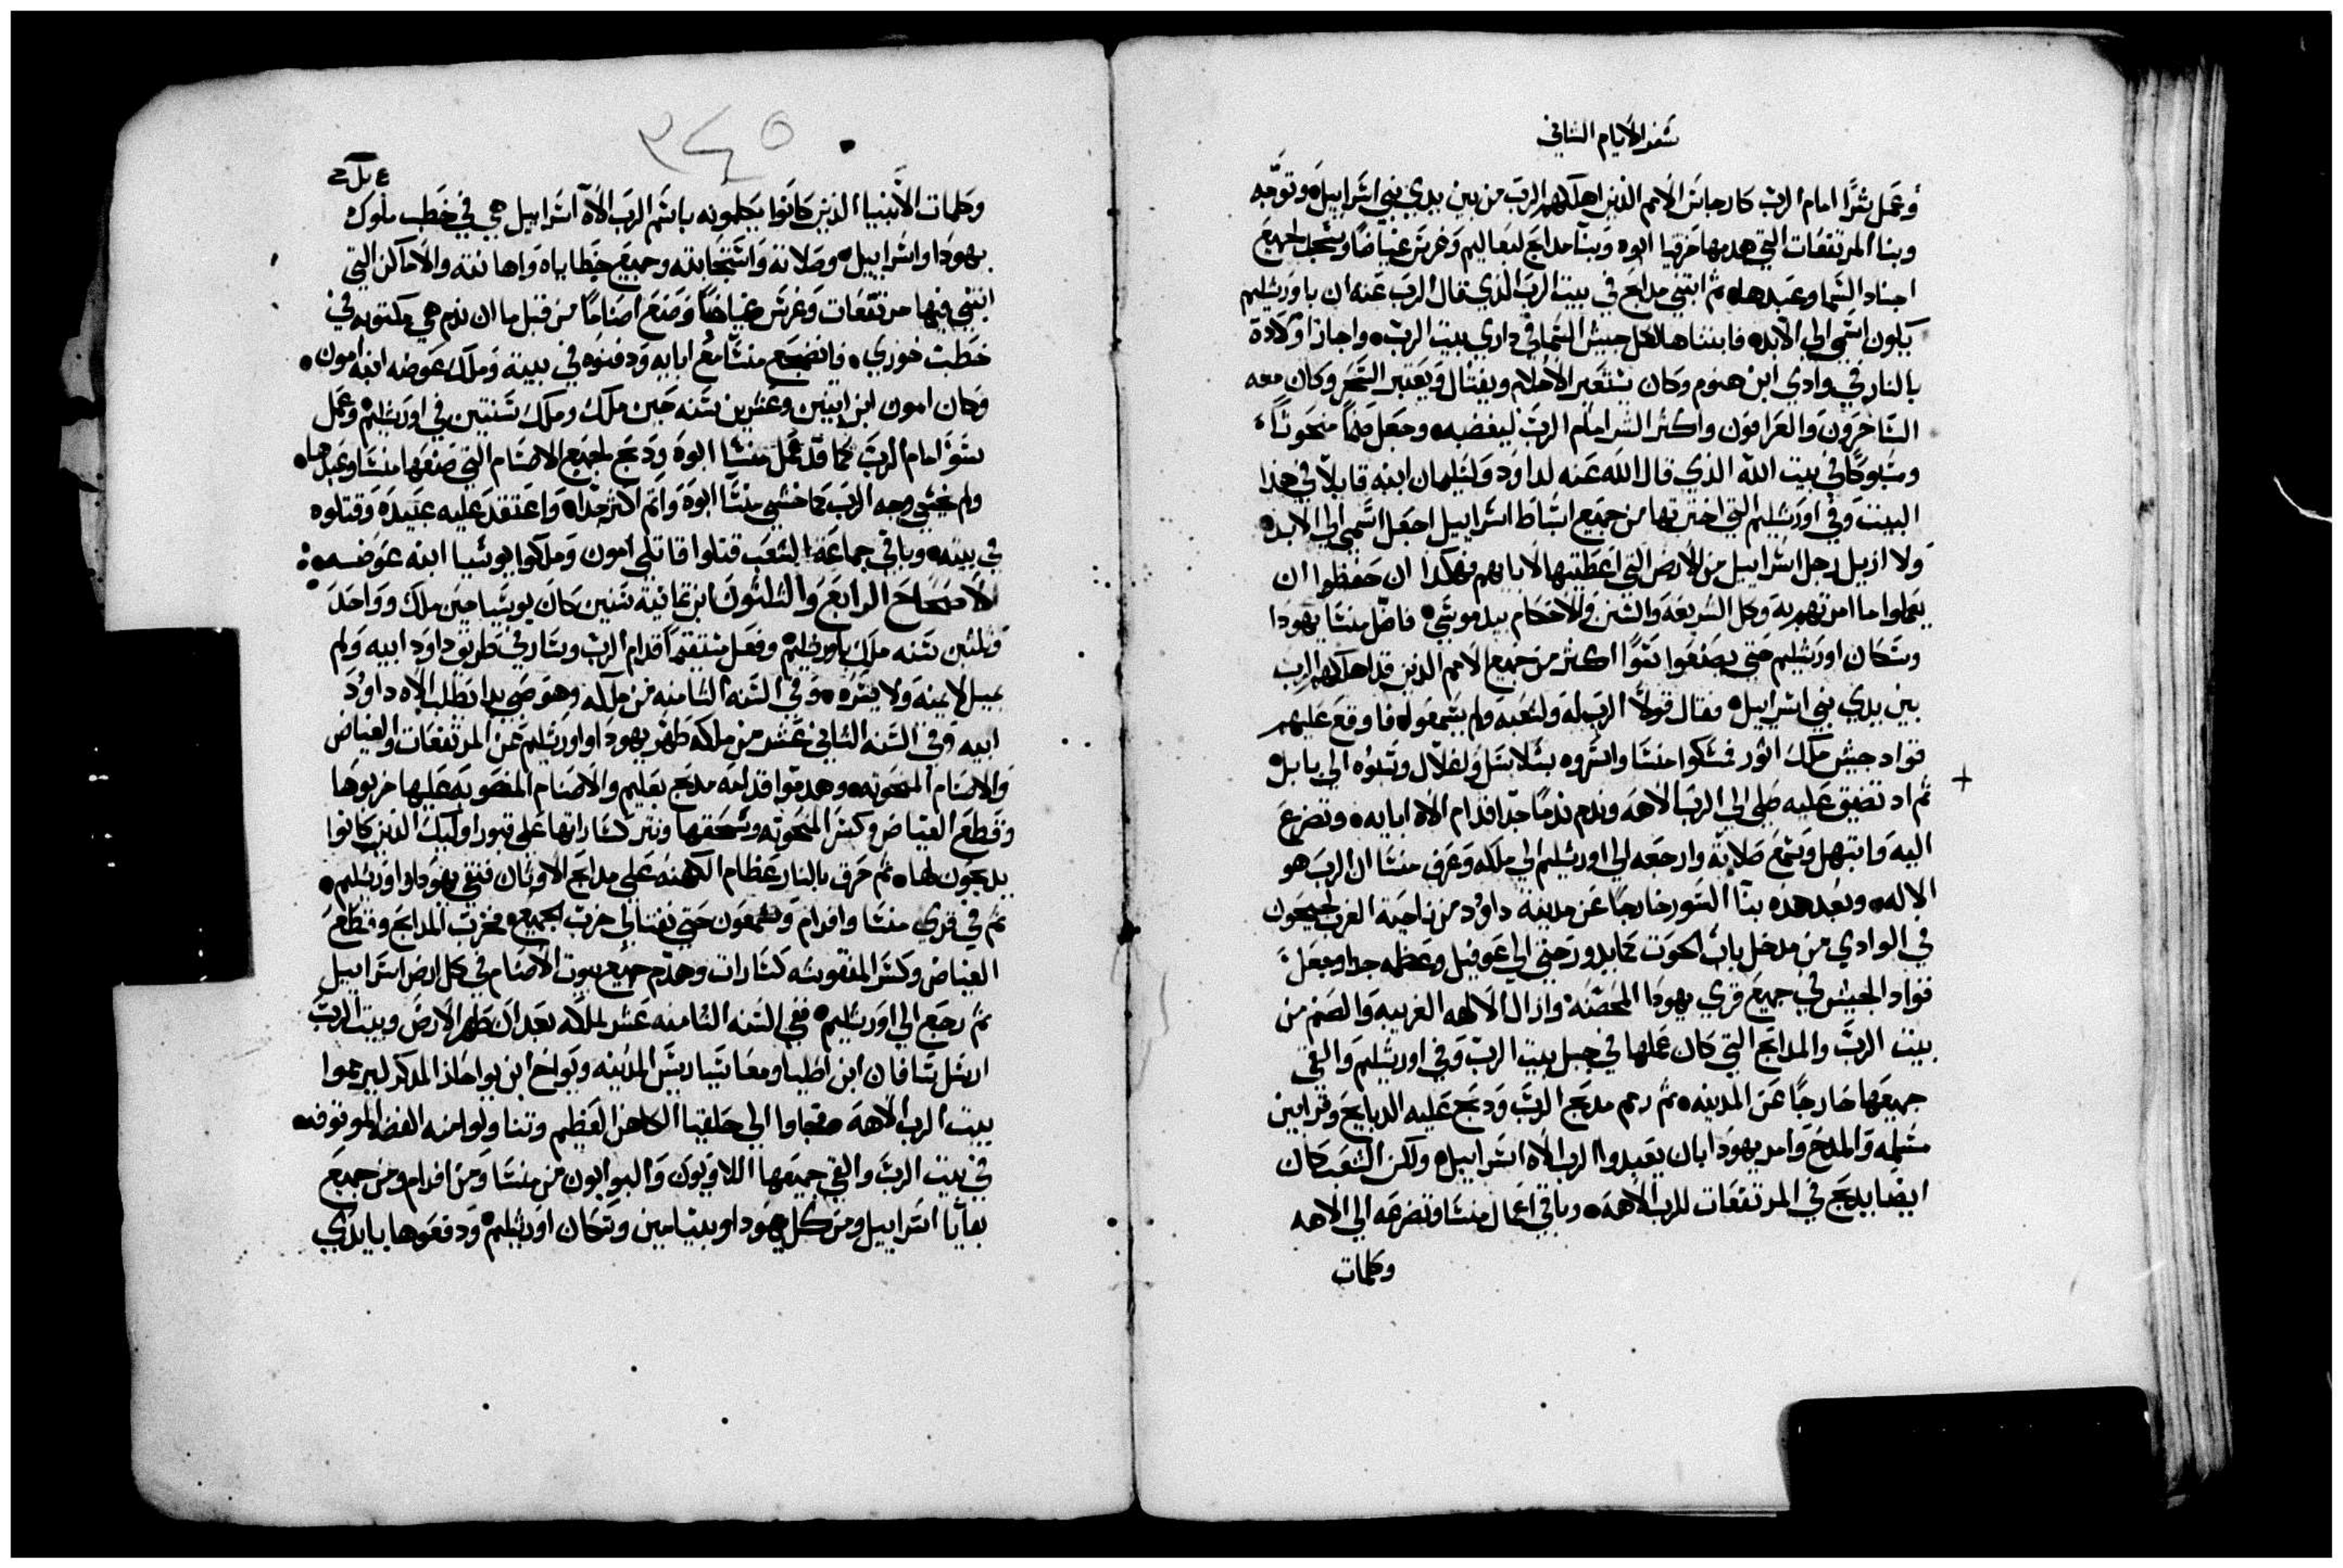 سفر الايام الثاني
وعمل شرًا امام الرب كارجاس الامم الذين اهلكهم الرب من بين يدي بني اسراييل وتوجه
وبنا المرتفعات التي هدمها حزقيا ابوه وبنا مدابح لبعاليم وغرس غياضًا وسجد لجميع
اجناد السما وعبدها ثم ابتني مدابح في بيت الرب الذي قال الرب عنه ان باورشليم
يكون اسمي الي الابد فابتناها لكل جيش السما في داري بيت الرب واجاز اولاده
بالنار في وادي ابن هنوم وكان يستعبر الاحلام ويفتال ويعتبر السحر وكان معه
الساحرون والعرافون واكثر الشر امام الرب ليغضبه وجعل صنمًا منحوتًا
ومسبوكًا في بيت الله الذي قال الله عنه لداود ولسليمان ابنه قايلاً في هذا
البيت وفي اورشليم التي اخترتها من جميع اسباط اسراييل اجعل اسمي الي الابد
ولا ازيل رجل اسراييل من الارض التي اعطيتها لابايهم فهكدا ان حفظوا ان
يعملوا ما امرتهم به وكل الشريعة والسنن والاحكام بيد موسي فاضل منسا يهودا
وسكان اورشليم حتي يصنعوا سوًا اكثر من جميع الامم الذين قد اهلكهم الرب
بين يدي بني اسراييل فقال قولاً الرب له ولشعبه ولم يسمعوا فاوقع عليهم
قواد جيش ملك اثور فمسكوا منسا واسروه بسلاسل ولغلال وسبوه الي بابل
ثم اد تضيق عليه صلي الي الرب الاهه وندم ندمًا جدا قدام الاه ابايه وتضرع
اليه وابتهل وسمع صلاته وارجعه الي اورشليم الي ملكه وعرف منسا ان الرب هو
الاله وبعد هذه بنا السور خارجًا عن مدينة داود من ناحية الغرب لجيحون
في الوادي من مدخل باب الحوت كما يدور حتي الي عوفيل وعظمه جدا وجعل
قواد الجيش في جميع قري يهودا المحصنه وازال الالهه الغريبه والصنم من
بيت الرب والمدابح التي كان عملها في جبل بيت الرب وفي اورشليم والقي
جميعها خارجًا عن المدينه ثم رمم مدبح الرب ودبح عليه الدبايح وقرابين
مسلمه والمدح وامر يهودا بان يعبدوا الرب الاه اسراييل ولكن الشعب كان
ايضا يدبح في المرتفعات للرب الاهه وباقي اعمال منسا وتضرعه الي الاهه
وكلمات
٣٤٥
وكلمات الانبيا الذين كانوا يكلمونه باسم الرب الاه اسراييل هي في خطب ملوك
يهودا واسراييل وصلاته واستجابته وجميع خطاياه واهانته والاماكن التي
ابتني فيها مرتفعات وغرس غياضًا وصنع اصنامًا من قبل ما ان ندم هي مكتوبه في
خطب حوزي فانضجع منسا مع ابايه ودفنوه في بيته وملك عوضه ابنه امون
وكان امون ابن اثنين وعشرين سنه حين ملك وملك سنتين في اورشليم وعمل
سوًا امام الرب كما قد عمل منسا ابوه ودبح لجميع الاصنام التي صنعها منسا وعبدها
ولم يخشي وجه الرب كما خشي منسا ابوه واثم اكثر جدا واعتقد عليه عبيده وقتلوه
في بيته وباقي جماعة الشعب قتلوا قاتلي امون وملكوا يوشيا ابنه عوضه
الاصحاح الرابع والثلثون ابن ثمانية سنين كان يوشيا حين ملك وواحد
وثلثين سنه ملك باورشليم وفعل مستقيمًا قدام الرب وسار في طريق داود ابيه ولم
يميل لايمينه ولا يسره وفي السنه الثامنه من ملكه وهو صبي بدا يطلب الاه داود
ابيه وفي السنه الثاني عشر من ملكه طهر يهودا واورشليم من المرتفعات والغياض
والاصنام المنحوته وهدموا قدامه مدبح بعليم والاصنام المنصوبه عليها خربوها
وقطع الغياض وكسر المنحوته وسحقها ونثر كساراتها علي قبور اوليك الذين كانوا
يدبحون لها ثم حرق بالنار عظام الكهنه علي مدابح الاوثان فنقي يهودا واورشليم
ثم في قري منسا وافرام وشمعون حتي نفتالي خرب الجميع فخرب المدابح وقطع
الغياض وكسر المنقوشه كسارات وهدم جميع بيوت الاصنام في كل ارض اسراييل
ثم رجع الي اورشليم ففي السنه الثامنه عشر لملكه بعد ان طهر الارض وبيت الرب
ارسل سافان ابن اطليا ومعاسيا ريس المدينه ويواخ ابن يواحاز المدكر ليرمموا
بيت الرب الاهه فجاوا الي حلقيا الكاهن العظيم وتناولوا منه الفضه الموتوفه
في بيت الرب والتي جمعها اللاويون والبوابون من منسا ومن افرام ومن جميع
بقايا اسراييل ومن كل يهودا وبنيامين وسكان اورشليم ودفعوها بايدي